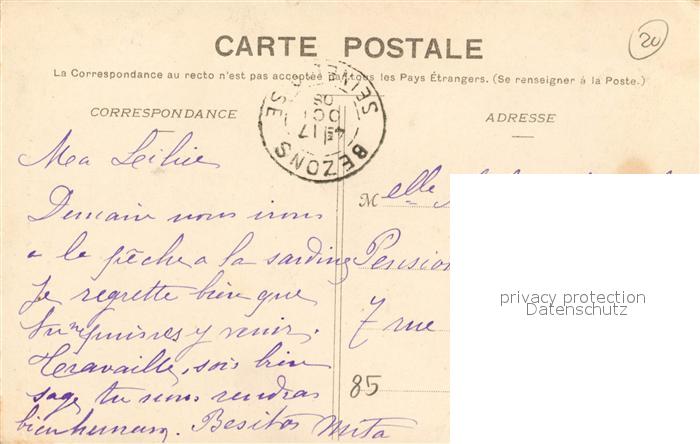 20
CARTE POSTALE
La Correspondance au recto n'est pas acceptée par tous les Pays Étrangers. (Se renseigner à la Poste.)
CORRESPONDANCE
ADRESSE
BEZONS
SEINE
OISE
17
OCT
08
Demain nous irons
a la pêche a la sardine
Je regrette bien que
tu ne puisses y venir.
travaille, sois bien
sage tu nous rendras
bien heureux. Besitos Mita
Melle
Pension
7 rue
85
privacy protection
Datenschutz